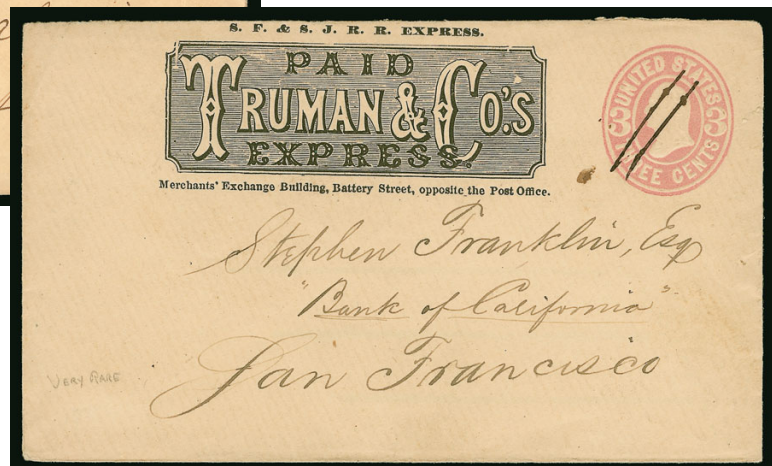 S. F. & S. J. R. R. EXPRESS.
PAID
TRUMAN & CO'S
EXPRESS.
Merchants' Exchange Building, Battery Street, opposite the Post Office.
UNITED STATES
3 3
THREE CENTS
Stephen Franklin, Esq
"Bank of California"
San Francisco
VERY RARE